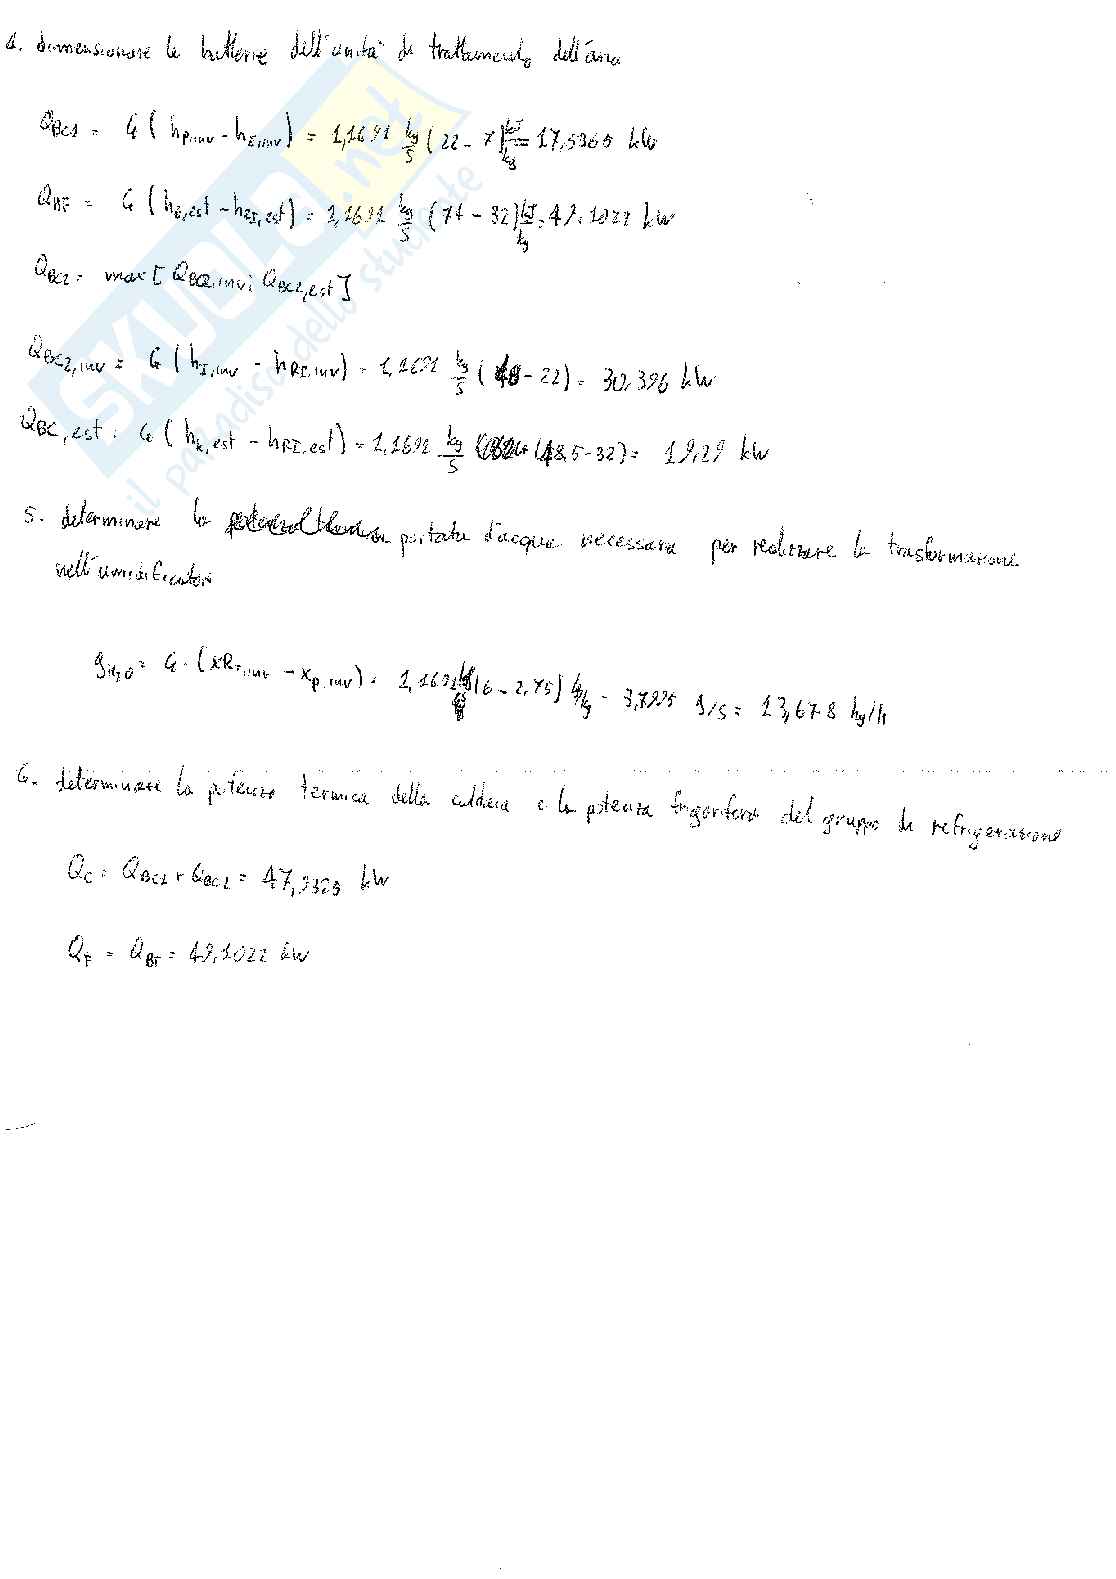 4. dimensionare le batterie dell'unità di trattamento dell'aria
Q_BC1 = G (h_P,inv - h_E,inv) = 1,1691 kg/s (22 - 7) kJ/kg = 17,5365 kW
Q_BF = G (h_E,est - h_RI,est) = 1,1691 kg/s (74 - 32) kJ/kg = 49,1022 kW
Q_BC2 = max [Q_BC2,inv; Q_BC2,est]
Q_BC2,inv = G (h_I,inv - h_RI,inv) = 1,1691 kg/s (48 - 22) = 30,396 kW
Q_BC,est = G (h_k,est - h_RI,est) = 1,1691 kg/s (48,5 - 32) = 19,29 kW
5. determinare la portata d'acqua necessaria per realizzare la trasformazione
nell'umidificatore
g_H2O = G · (x_RI,inv - x_P,inv) = 1,1691 (6 - 2,75) g/kg = 3,7995 g/s = 13,678 kg/h
6. determinare la potenza termica della caldaia e la potenza frigorifera del gruppo di refrigerazione
Q_C = Q_BC1 + Q_BC2 = 47,9323 kW
Q_F = Q_BF = 49,1022 kW
SKUOLA.net
il paradiso dello studente